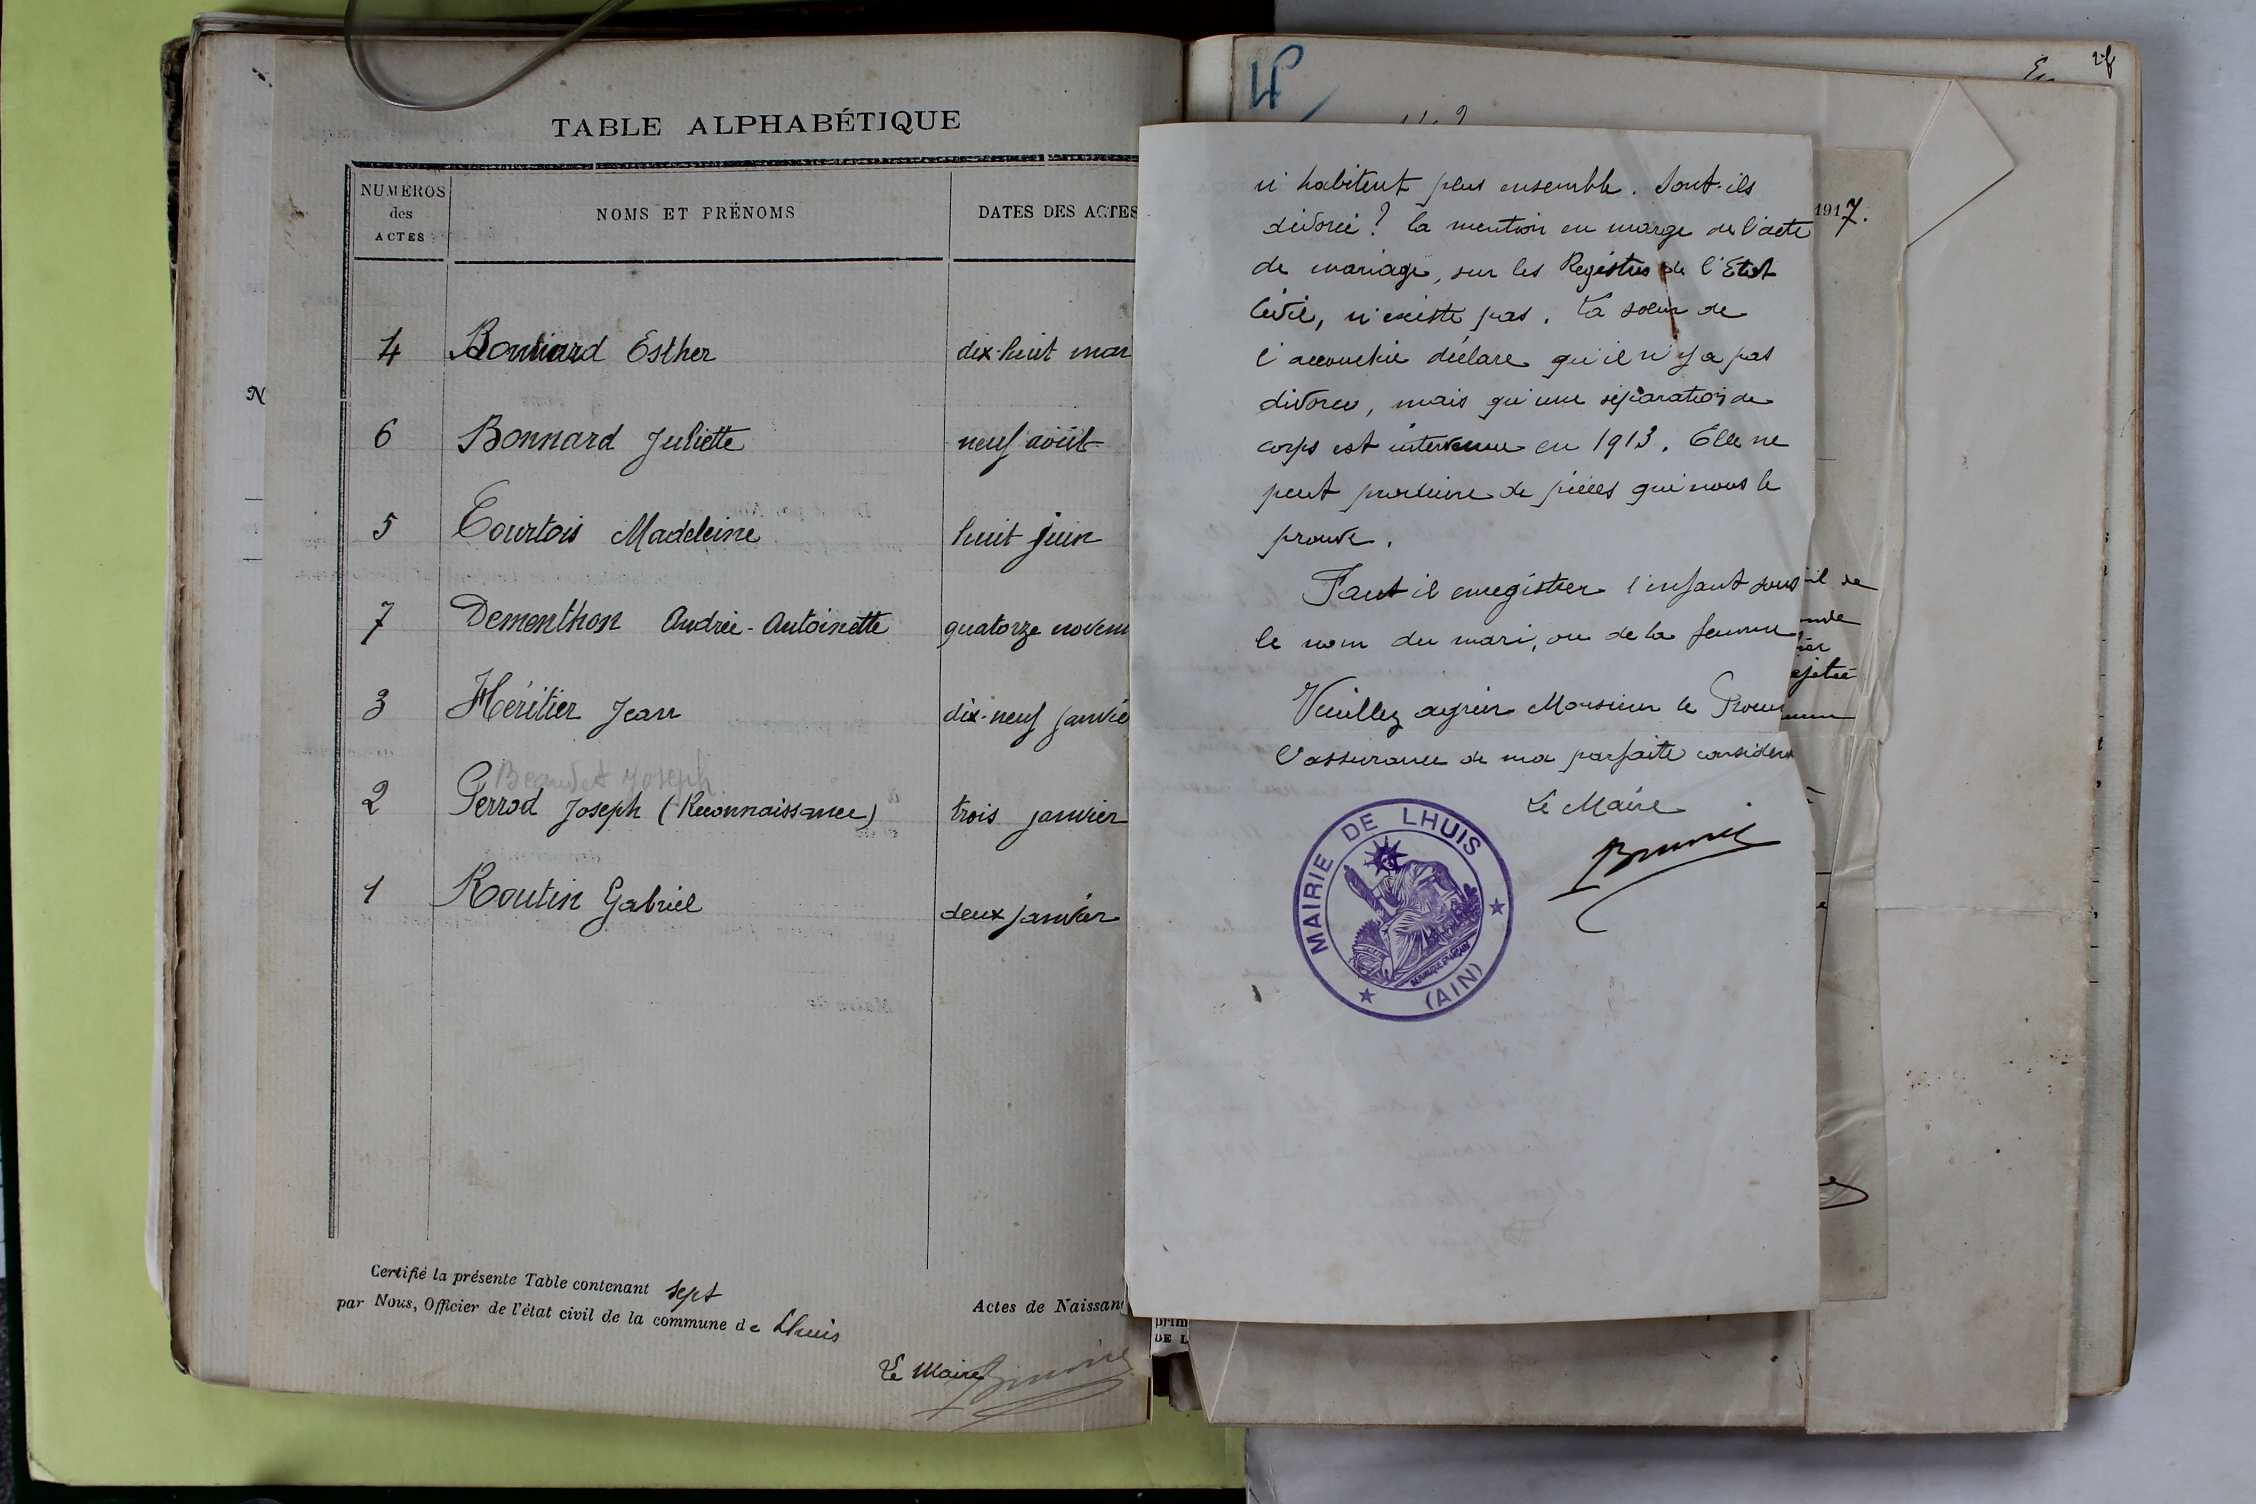 TABLE ALPHABÉTIQUE
NUMÉROS
des
ACTES
NOMS ET PRÉNOMS
DATES DES ACTES
4 Bonnard Esther dix-huit mar
6 Bonnard Juliette neuf août
5 Courtois Madeleine huit juin
7 Dementhon Andrée-Antoinette quatorze novem
3 Héritier Jean dix-neuf janvie
Joseph
2 Perrod Joseph (Reconnaissance) trois janvier
1 Routin Gabriel deux janvier
Certifié la présente Table contenant sept Actes de Naissan
par Nous, Officier de l'état civil de la commune de Lhuis
Le Maire
N
n'habitent plus ensemble. Sont-ils
divorcé? la mention en marge de l'acte
de mariage, sur les Registres de l'Etat
Civil, n'existe pas. La soeur de
l'accouchée déclare qu'il n'y a pas
divorce, mais qu'une séparation de
corps est intervenue en 1913. Elle ne
peut produire de pièces qui nous le
prouve.
Faut il enregistrer l'enfant sous
le nom du mari, ou de la femme
Veuillez agréer Monsieur le Procu
l'assurance de ma parfaite considera
Le Maire
MAIRIE DE LHUIS
(AIN)
1917.
prim
DE L